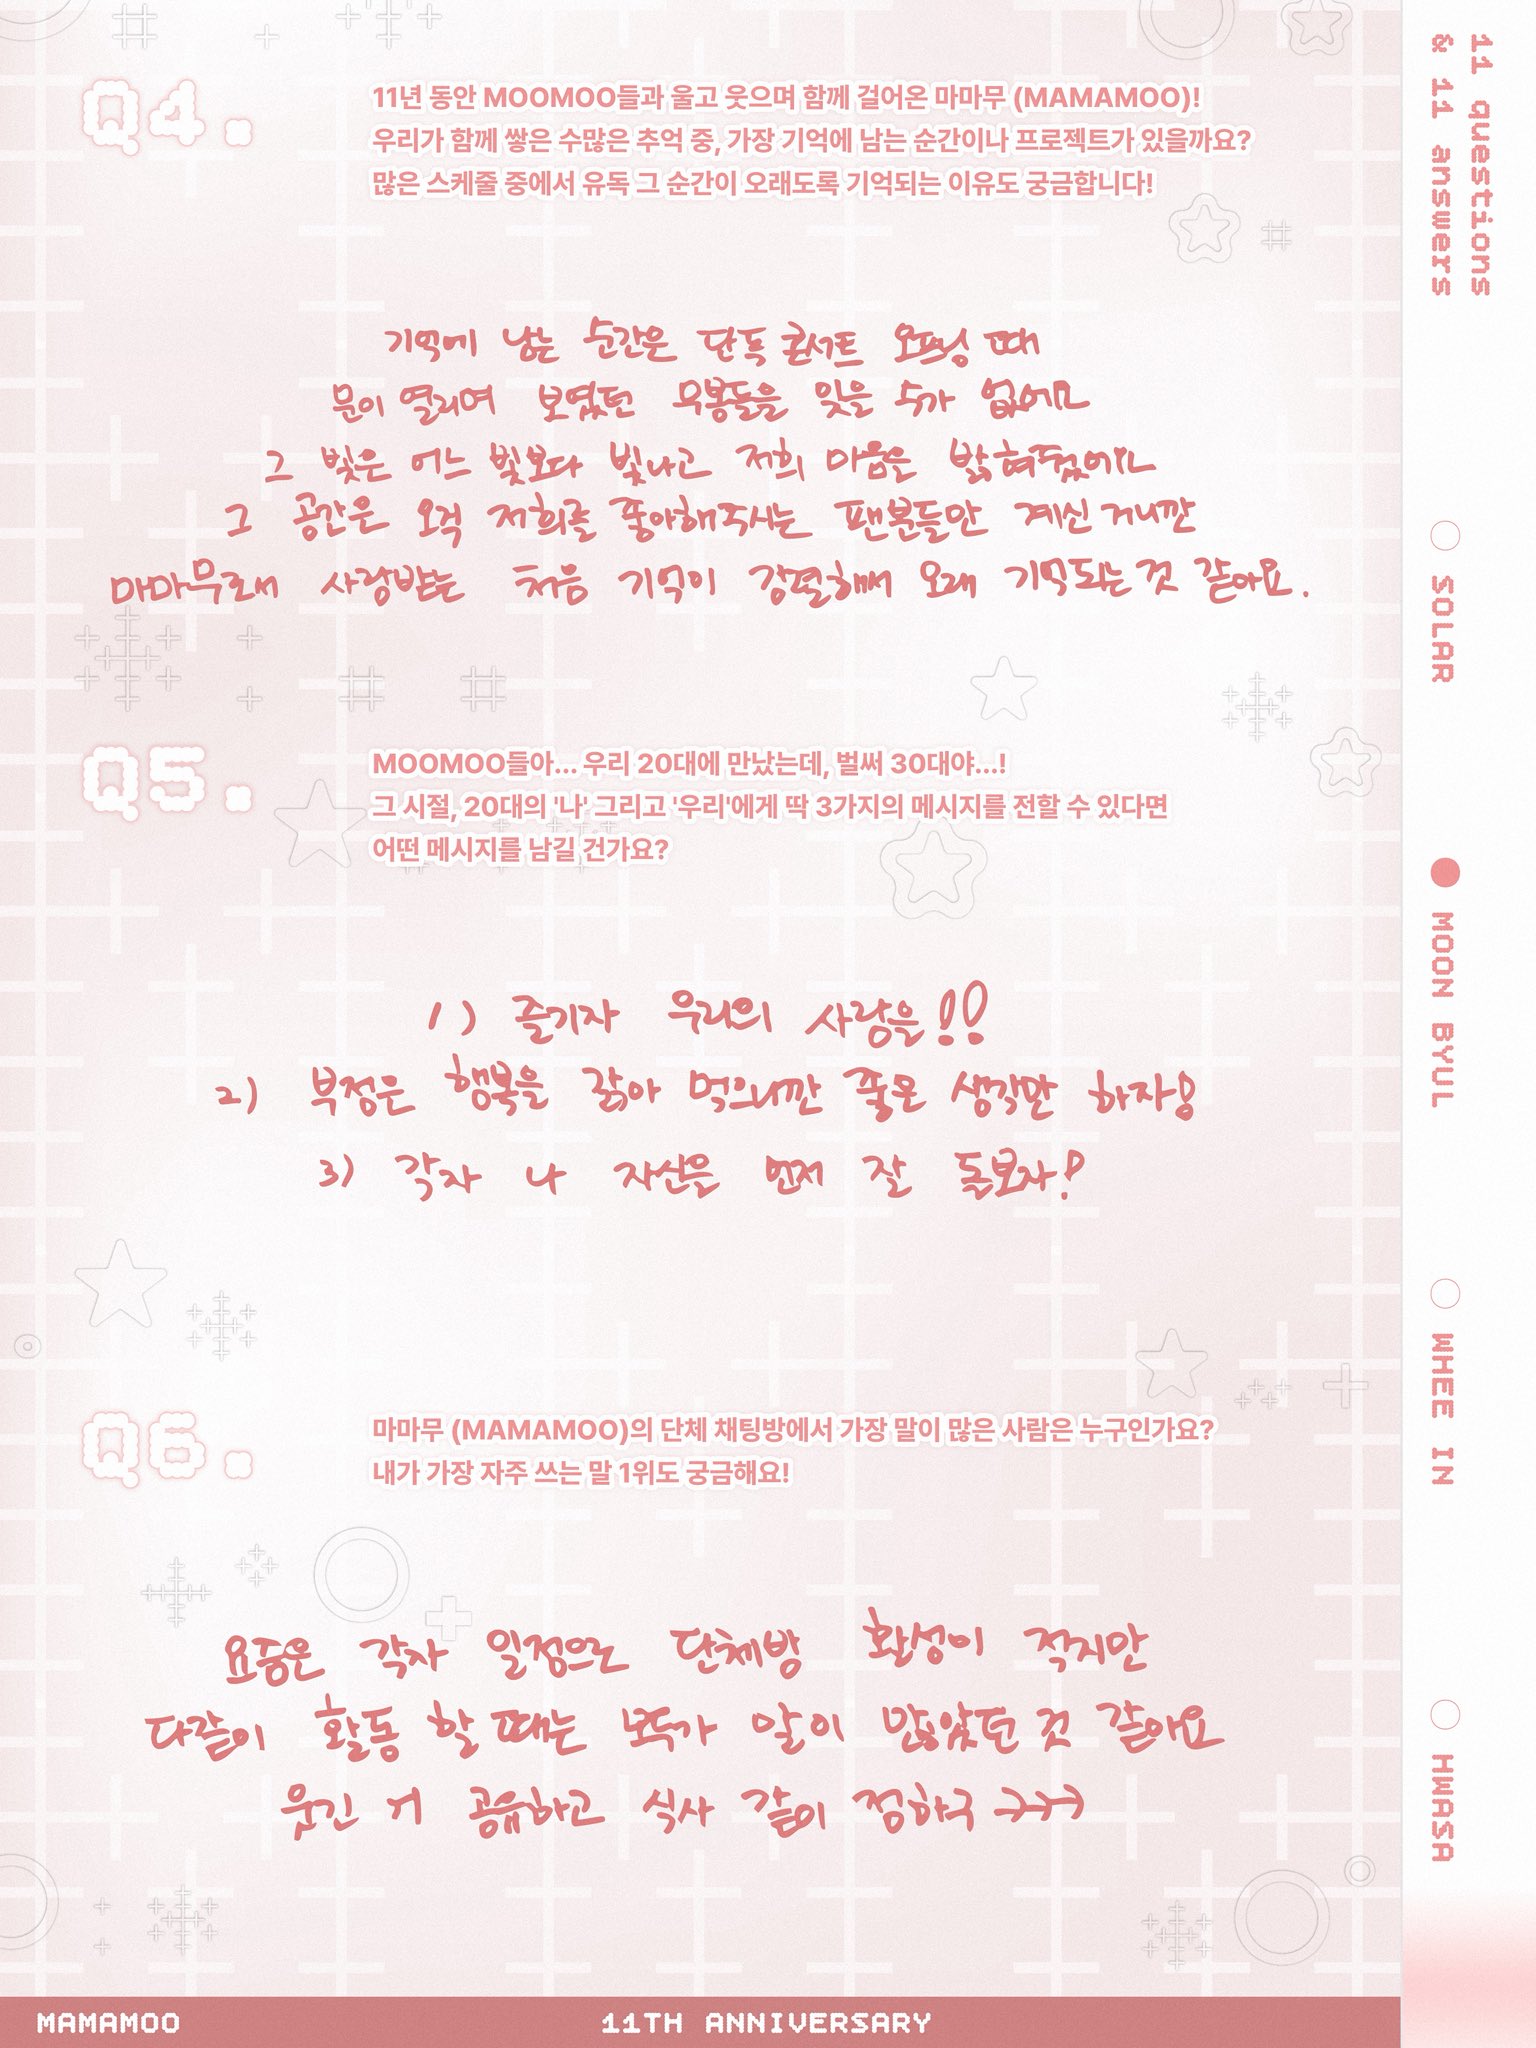 11 questions
& 11 answers
Q4.
11년 동안 MOOMOO들과 울고 웃으며 함께 걸어온 마마무 (MAMAMOO)!
우리가 함께 쌓은 수많은 추억 중, 가장 기억에 남는 순간이나 프로젝트가 있을까요?
많은 스케줄 중에서 유독 그 순간이 오래도록 기억되는 이유도 궁금합니다!
기억에 남는 순간은 단독 콘서트 오프닝 때
문이 열리며 보였던 무봉들을 잊을 수가 없어요
그 빛은 어느 빛보다 빛나고 저희 마음을 밝혀줬어요
그 공간은 오직 저희를 좋아해주시는 팬분들만 계신 거니깐
마마무로서 사랑받는 처음 기억이 강렬해서 오래 기억되는 것 같아요.
Q5.
MOOMOO들아... 우리 20대에 만났는데, 벌써 30대야...!
그 시절, 20대의 '나' 그리고 '우리'에게 딱 3가지의 메시지를 전할 수 있다면
어떤 메시지를 남길 건가요?
1) 즐기자 우리의 사랑을!!
2) 부정은 행복을 갉아 먹으니깐 좋은 생각만 하자!
3) 각자 나 자신을 먼저 잘 돌보자!
Q6.
마마무 (MAMAMOO)의 단체 채팅방에서 가장 말이 많은 사람은 누구인가요?
내가 가장 자주 쓰는 말 1위도 궁금해요!
요즘은 각자 일정으로 단체방 활성이 적지만
다같이 활동 할 때는 모두가 말이 많았던 것 같아요
웃긴 거 공유하고 식사 같이 정하구 ㅋㅋㅋ
SOLAR
MOON BYUL
WHEE IN
HWASA
MAMAMOO
11TH ANNIVERSARY